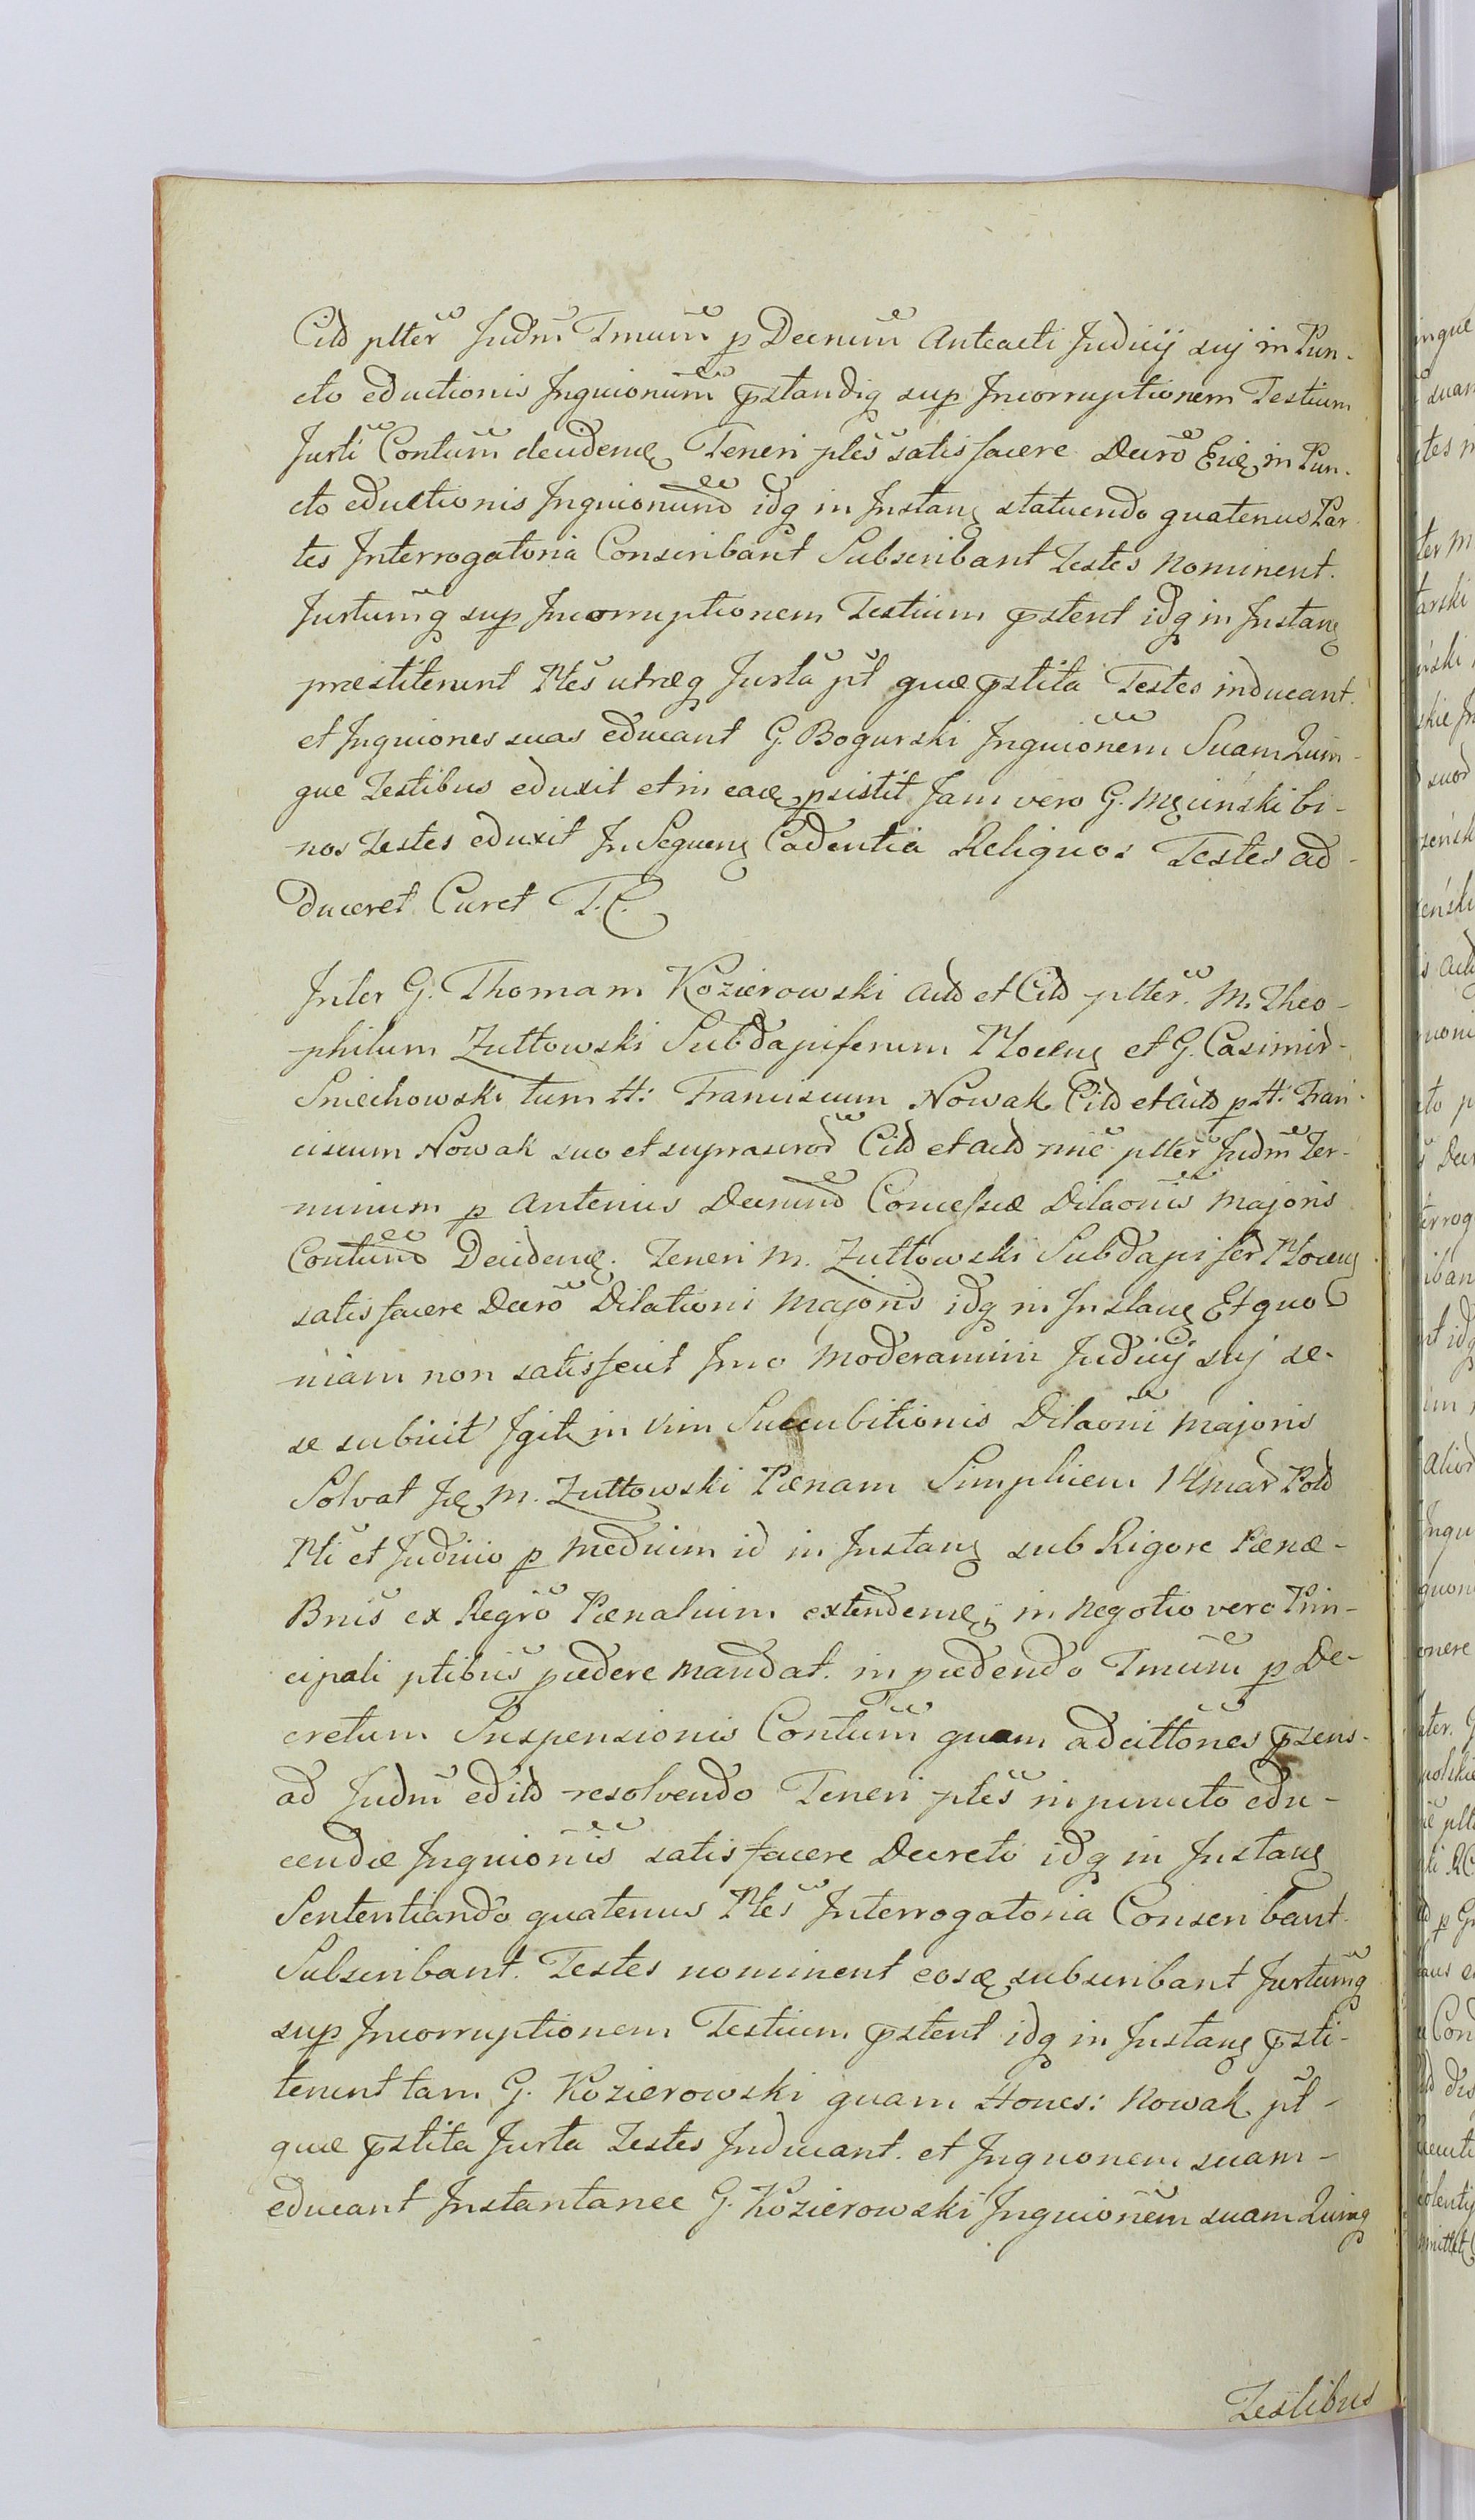 Citd plter Judm Tmum p Decnum Anteacti Judicij suj in Pun-
cto eductionis Inquionum pstandiq sup Incorruptionem Testium
Jurti Contum decidendę Teneri ptes satisfacere Decro Ejus in Pun-
cto eductionis Inquionum idq in Instanę statuendo quatenus Par
tes Interrogatoria Conscribant Subscribant Testes Nominent.
Jurtumq sup Incorruptionem Testium pstent idq in Instanę
praestiterunt Ptes utraeq Jurta pt quae pstita Testes inducant.
et Inquiones suas educant G. Bogurski Inquionem Suam Quin-
que Testibus eduxit et in eaę psistit Jam vero G. Męcinski bi-
nos Testes eduxit In Sequenę Cadentia Reliquos Testes ad-
duceret Curet T. C.
Inter G. Thomam Kozierowski Actd et Citd plter M. Theo-
philum Zułtowski Subdapiferum Ploceng et G. Casimir-
Sniechowski tum H: Franciscum Nowak Citd et Actd p H. Fran-
ciscum Nowak suo et suprascrod Citd et Actd nnie plter Judm Ter-
minum p Anterius Decnum Concessae Dilaonis Majoris
Contum Decidendę. Teneri M. Zułtowski Subdapiferd Ploceng
satisfacere Decro Dilationi Majoris idq in Instanę Et quo
niam non satisfecit Imo Moderamini Judicij suj se-
se subicit Igitr in vim Succubitionis Dilaoni Majoris
Solvat Ję M. Zułtowski Paenam Simplicem 14 mar Pold
Pti et Judicio p Medium id in Instanę sub Rigore Paenae-
Bnis ex Regro Paenalium extendendę, in Negotio vero Prin-
cipali ptibus pcedere mandat. in pcedendo Tmum p De-
cretum Suspensionis Contum quam adcittones psens-
ad Judm editd resolvendo Teneri ptes in puncto edu-
cendae Inquionis satisfacere Decreto idq in Instanę
Sententiando quatenus Ptes Interrogatoria Conscribant.
Subscribant. Testes nominent eosę subscribant Jurtumq
sup Incorruptionem Testium pstent idq in Instanę psti-
terunt tam G. Kozierowski quam Hones: Nowak pt-
quae pstita Jurta Testes Inducant. et Inquonem suam-
educant Instantanee G. Kozierowski Inquionem suam Quinq
Testibus